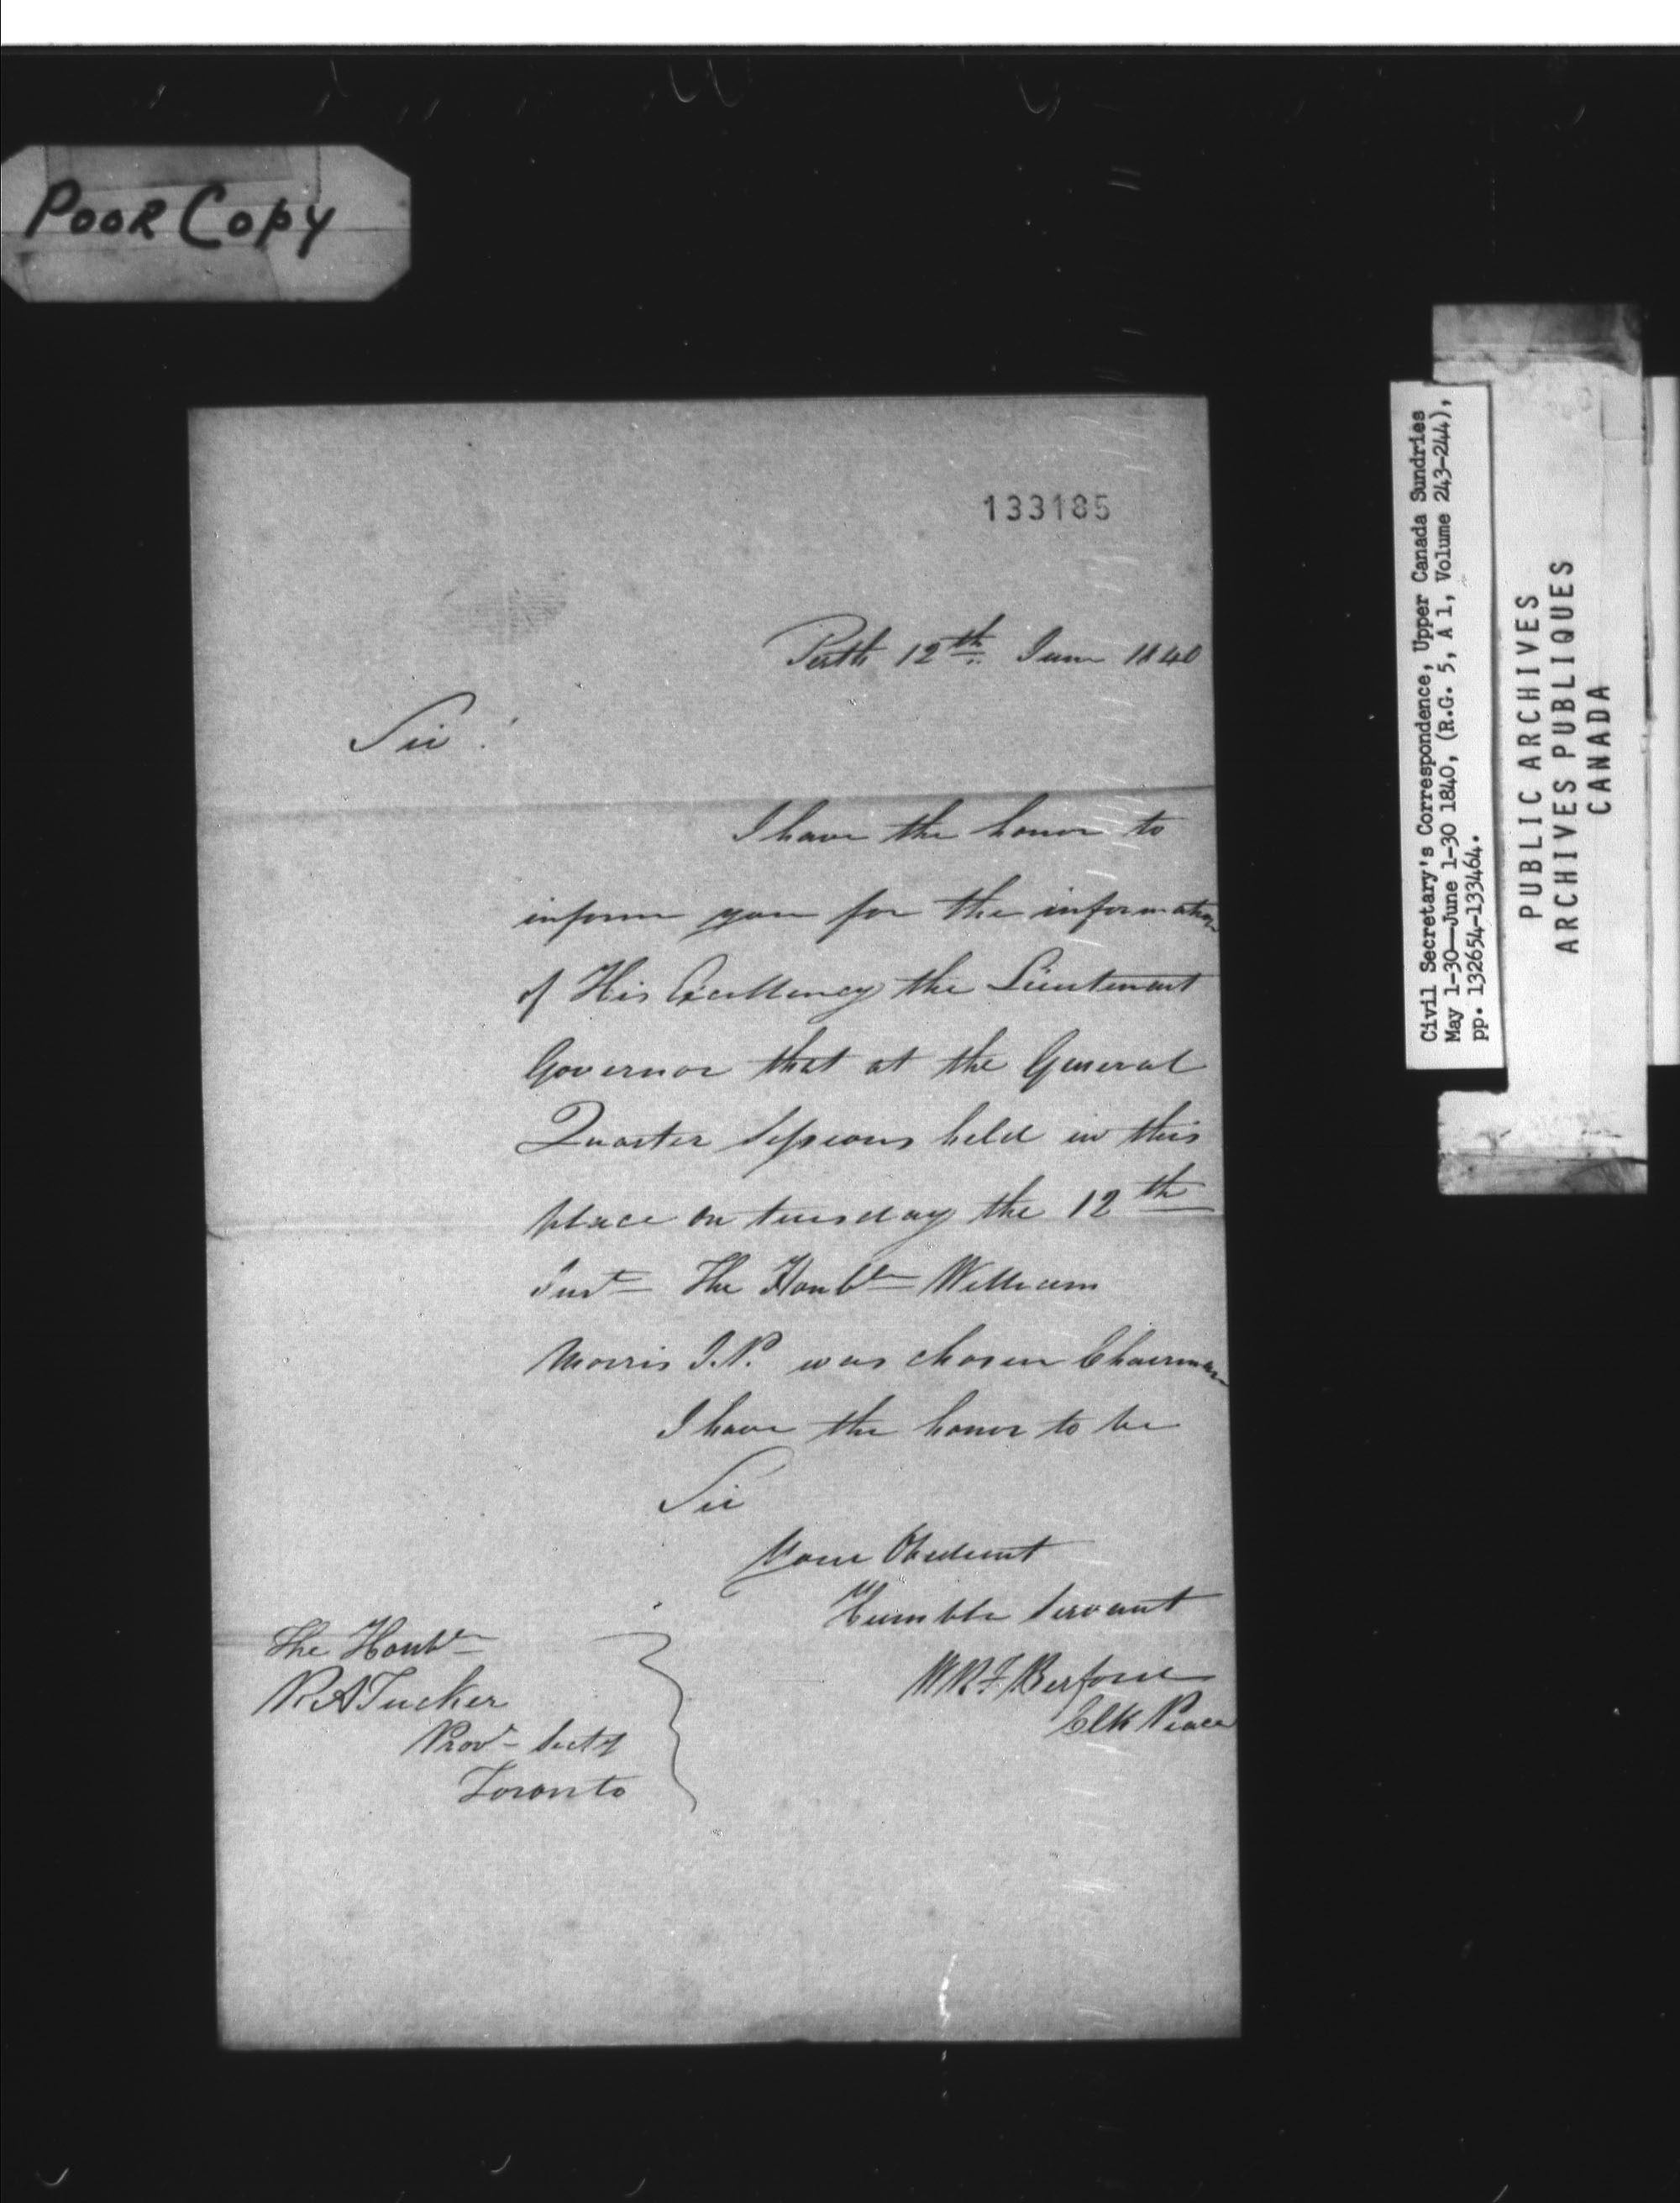 Poor Copy
133185
Perth 12th June 1840
Sir!
I have the honor to
inform you for the information
of His Excellency the Lieutenant
Governor that at the General
Quarter Sessions held in this
place on tuesday the 12th
Inst The Honble William
Morris J.P. was chosen Chairman
I have the honor to be
Sir
Your Obedient
Humble Servant
W R F Berford
Clk Peace
The Honble
R A Tucker
Prov Secty
Toronto
Civil Secretary's Correspondence, Upper Canada Sundries
May 1-30—June 1-30 1840, (R.G. 5, A 1, Volume 243-244),
pp. 132654-133464.
PUBLIC ARCHIVES
ARCHIVES PUBLIQUES
CANADA